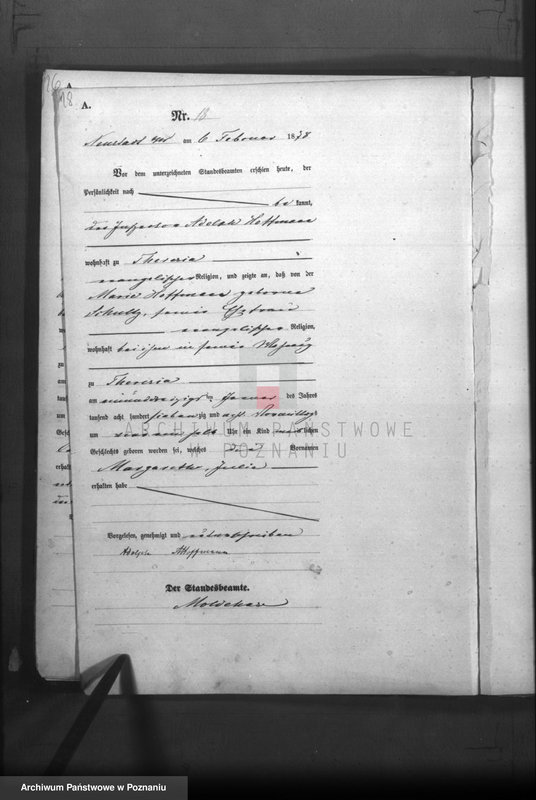 A.
Nr. 18
am 6 Februar 1878
Vor dem unterzeichneten Standesbeamten erschien heute, der
Persönlichkeit nach
be kannt,
der Inspector Adolph Hoffmann
wohnhaft zu Theresia
evangelischer Religion, und zeigte an, daß von der
Marie Hoffmann geborene
Schultz, seine Ehefrau
evangelischer Religion,
wohnhaft bei ihm in seiner Wohnung
zu Theresia
am einunddreizigsten Januar des Jahres
tausend acht hundert sieben zig und acht Vormittags
um Uhr ein Kind weiblichen
Geschlechts geboren worden sei, welches Vornamen
Margarethe, Julie
erhalten habe
Vorgelesen, genehmigt und unterschrieben
Adolph Hoffmann
Der Standesbeamte.
ARCHIWUM PAŃSTWOWE
W POZNANIU
Archiwum Państwowe w Poznaniu